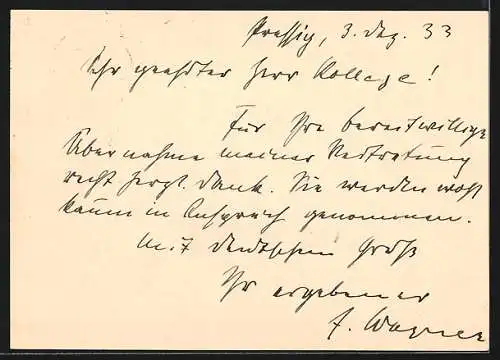 Pressig, 3. Dez. 33
Sehr geehrter Herr Kollege!
Für Ihre bereitwillige
Übernahme meiner Vertretung
recht herzl. Dank. Sie werden wohl
kaum in Anspruch genommen.
Mit deutschem Gruß
Ihr ergebener
F. Wagner